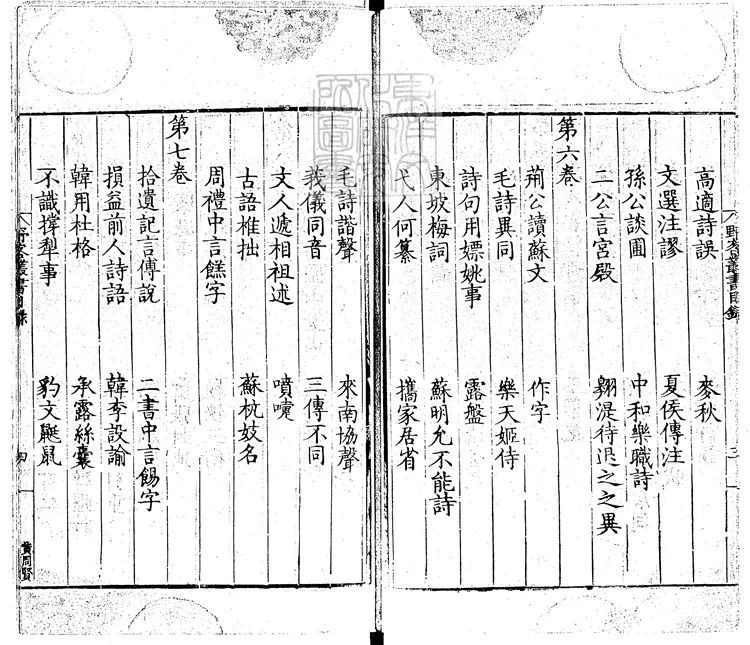 高適詩誤 麥秋
文選注謬 夏侯傳注
孫公談圃 中和樂職詩
二公言宮殿 翺湜待退之之異
第六卷
荊公讀蘇文 作字
毛詩異同 樂天姬侍
詩句用嫖姚事 露盤
東坡梅詞 蘇明允不能詩
弋人何篡 攜家居省
毛詩諧聲 來南協聲
我儀同音 三傳不同
文人遞相祖述 噴嚏
古語椎拙 蘇杭妓名
周禮中言餻字
第七卷
拾遺記言傅說 二書中言餳字
損益前人詩語 韓李設諭
韓用杜格 承露絲囊
不識撐犁事 豹文鼮鼠
野客叢書目錄
三
四
黃周賢